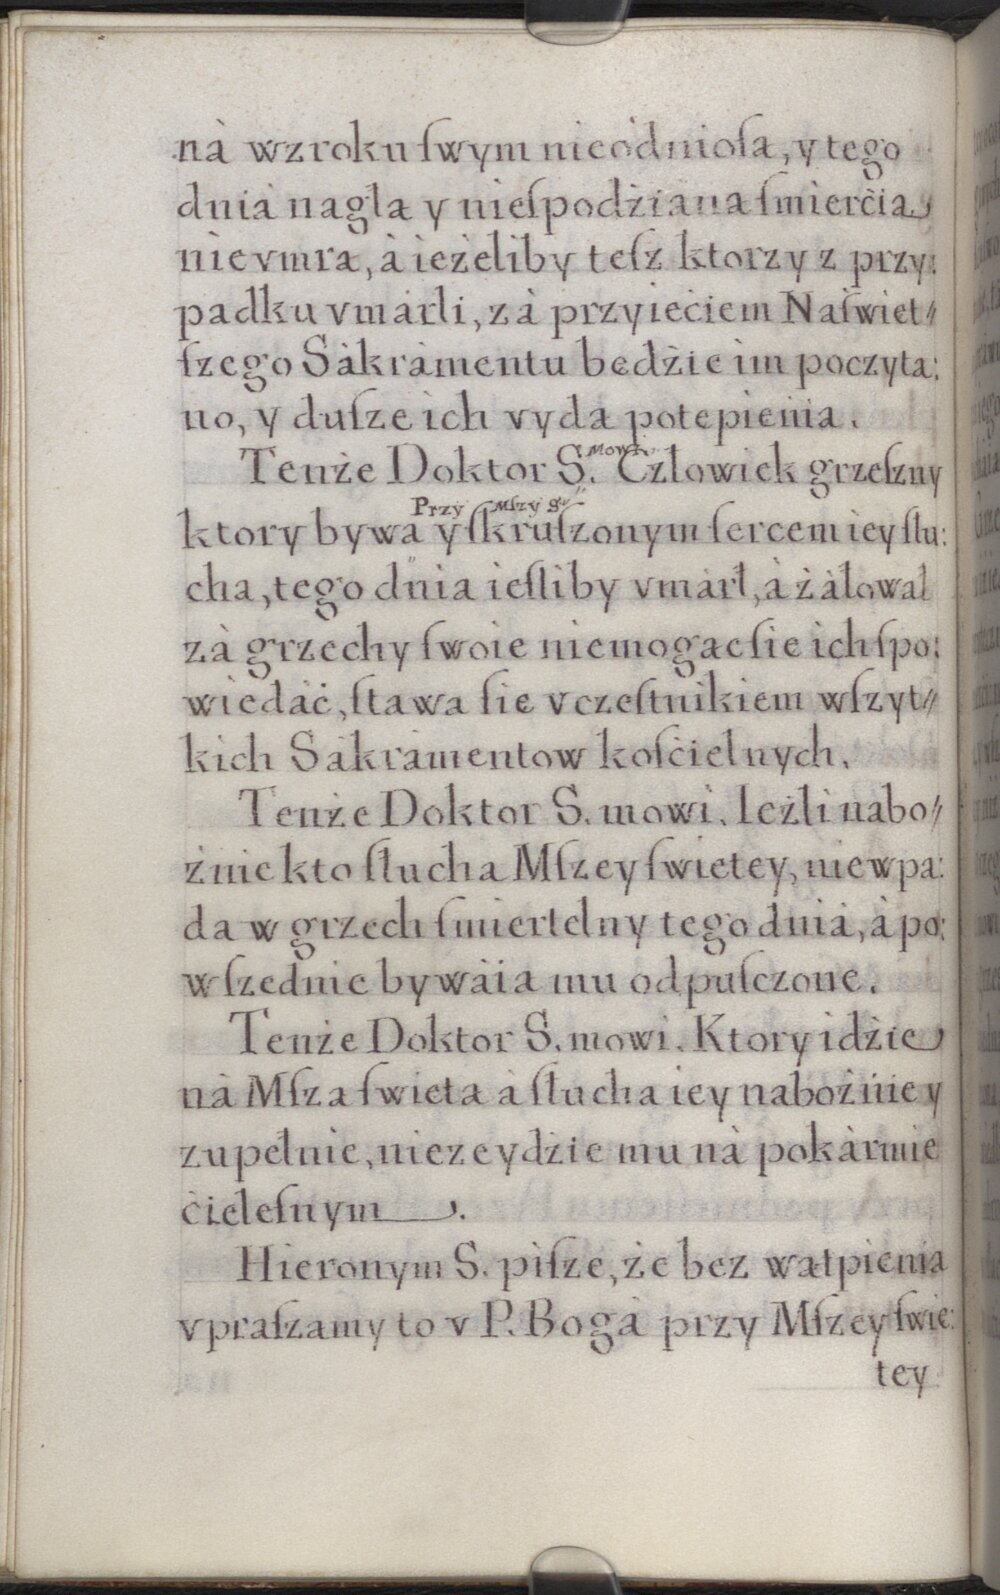 nà wzroku ſwym nieodnioſa, y tego
dnià nagła y nieſpodźiàna ſmierćia
nie vmra, à ieżeliby teſz ktorzy z przy:
padku vmàrli, zà przyiećiem Naſwiet⸗
ſzego Sàkràmentu będźie im poczyta:
no, y duſze ich vyda potepienia.
Tenże Doktor S. mowi. Człowiek grzeſzny
Przy Mſzy S.
ktory bywa y ſkruſzonym ſercem iey ſłu:
cha, tego dnia ieſliby vmàrł, à żàłował
zà grzechy ſwoie niemogac ſie ich ſpo:
wiedàć, ſtawa ſię vczeſtnikiem wſzyt⸗
kich Sàkràmentow kośćielnych.
Tenże Doktor S. mowi. Ieżli nabo⸗
żnie kto ſłucha Mſzey ſwietey, niewpa:
da w grzech ſmiertelny tego dnià, à po:
wſzednie bywàia mu odpuſczone.
Tenże Doktor S. mowi. Ktory idźie
nà Mſza ſwieta à ſłucha iey nabożnie y
zupełnie, niezeydźie mu nà pokàrmie
ćieleſnym.
Hieronym S. piſze, że bez wątpienia
vpraſzamy to v P. Bogà przy Mſzey ſwie:
tey